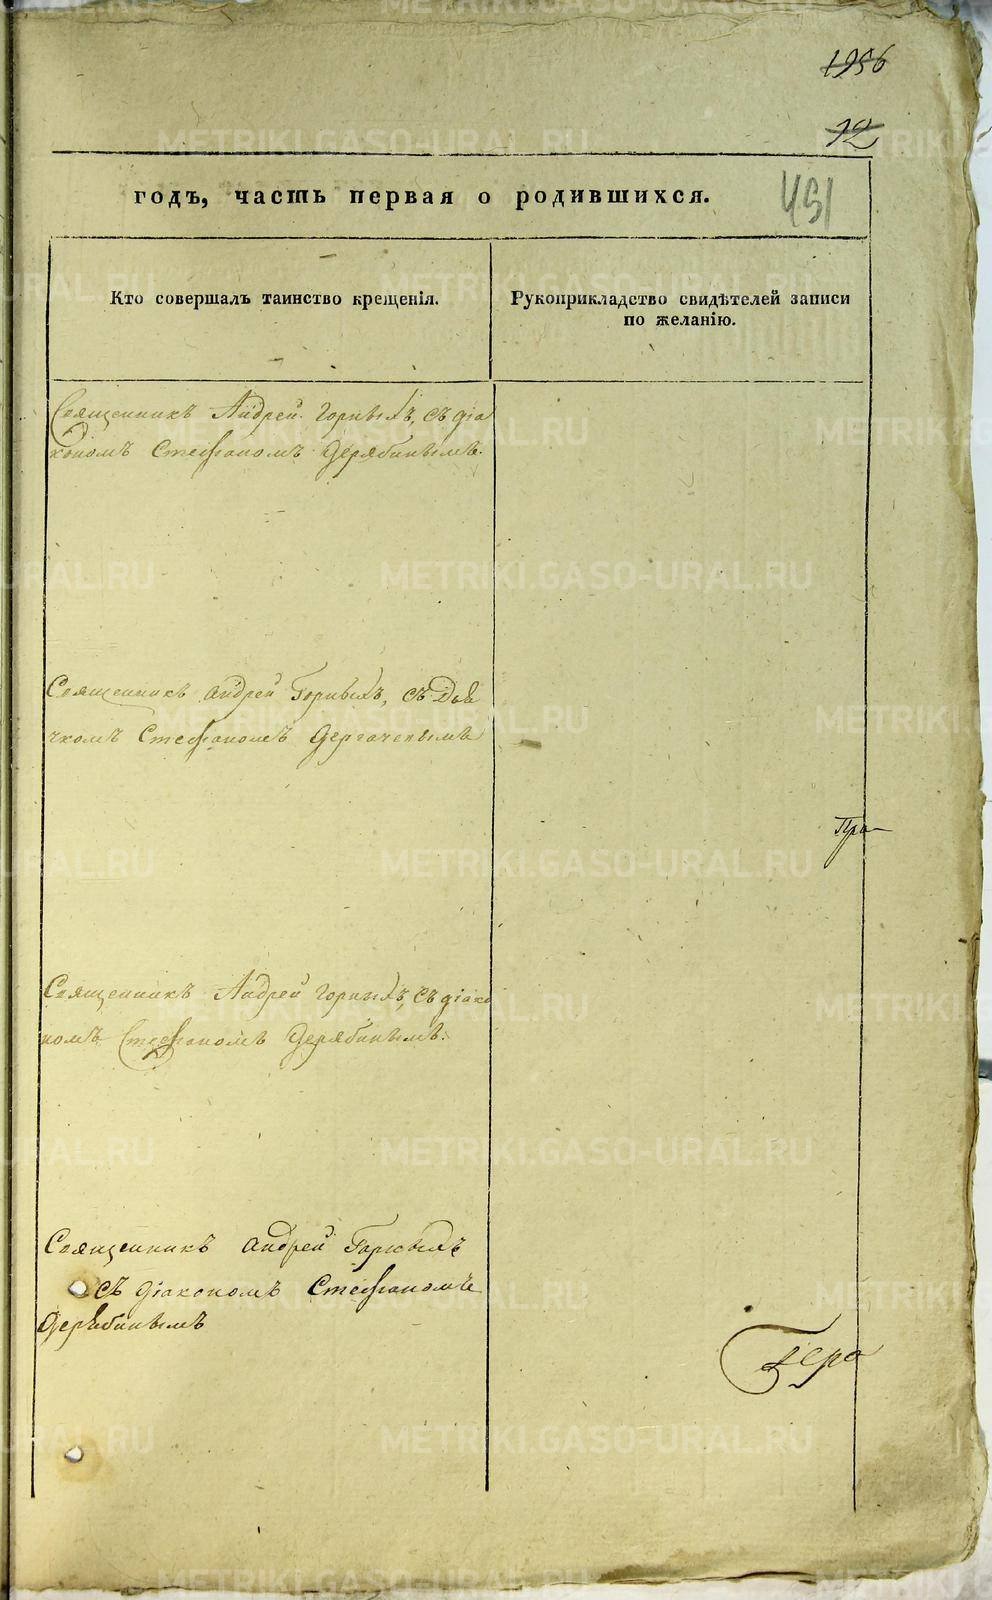 1956
12
годъ, часть первая о родившихся.
451
Кто совершалъ таинство крещенія.
Рукоприкладство свидѣтелей записи
по желанію.
Священникъ Андрей Горныхъ, съ діа
кономъ Стефаномъ Дерябинымъ.
Священникъ Андрей Горныхъ, съ Дья
чкомъ Стефаномъ Дергачевымъ
Священникъ Андрей Горныхъ, съ діако
номъ Стефаномъ Дерябинымъ.
Священникъ Андрей Горныхъ
съ діакономъ Стефаномъ
Дерябинымъ
METRIKI.GASO-URAL.RU